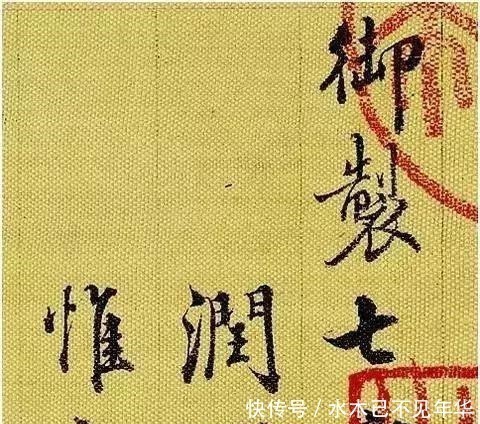 御製七
潤
惟
快传号 / 水木已不见年华